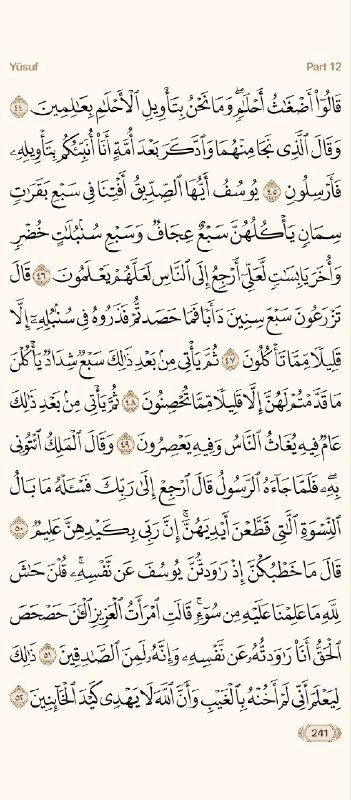 Yūsuf
Part 12
قَالُوٓا۟ أَضْغَـٰثُ أَحْلَـٰمٍۢ ۖ وَمَا نَحْنُ بِتَأْوِيلِ ٱلْأَحْلَـٰمِ بِعَـٰلِمِينَ ٤٤
وَقَالَ ٱلَّذِى نَجَا مِنْهُمَا وَٱدَّكَرَ بَعْدَ أُمَّةٍ أَنَا۠ أُنَبِّئُكُم بِتَأْوِيلِهِۦ
فَأَرْسِلُونِ ٤٥ يُوسُفُ أَيُّهَا ٱلصِّدِّيقُ أَفْتِنَا فِى سَبْعِ بَقَرَٰتٍۢ
سِمَانٍۢ يَأْكُلُهُنَّ سَبْعٌ عِجَافٌۭ وَسَبْعِ سُنۢبُلَـٰتٍ خُضْرٍۢ
وَأُخَرَ يَابِسَـٰتٍۢ لَّعَلِّىٓ أَرْجِعُ إِلَى ٱلنَّاسِ لَعَلَّهُمْ يَعْلَمُونَ ٤٦ قَالَ
تَزْرَعُونَ سَبْعَ سِنِينَ دَأَبًۭا فَمَا حَصَدتُّمْ فَذَرُوهُ فِى سُنۢبُلِهِۦٓ إِلَّا
قَلِيلًۭا مِّمَّا تَأْكُلُونَ ٤٧ ثُمَّ يَأْتِى مِنۢ بَعْدِ ذَٰلِكَ سَبْعٌۭ شِدَادٌۭ يَأْكُلْنَ
مَا قَدَّمْتُمْ لَهُنَّ إِلَّا قَلِيلًۭا مِّمَّا تُحْصِنُونَ ٤٨ ثُمَّ يَأْتِى مِنۢ بَعْدِ ذَٰلِكَ
عَامٌۭ فِيهِ يُغَاثُ ٱلنَّاسُ وَفِيهِ يَعْصِرُونَ ٤٩ وَقَالَ ٱلْمَلِكُ ٱئْتُونِى
بِهِۦ ۖ فَلَمَّا جَآءَهُ ٱلرَّسُولُ قَالَ ٱرْجِعْ إِلَىٰ رَبِّكَ فَسْـَٔلْهُ مَا بَالُ
ٱلنِّسْوَةِ ٱلَّـٰتِى قَطَّعْنَ أَيْدِيَهُنَّ ۚ إِنَّ رَبِّى بِكَيْدِهِنَّ عَلِيمٌۭ ٥٠
قَالَ مَا خَطْبُكُنَّ إِذْ رَٰوَدتُّنَّ يُوسُفَ عَن نَّفْسِهِۦ ۚ قُلْنَ حَـٰشَ
لِلَّهِ مَا عَلِمْنَا عَلَيْهِ مِن سُوٓءٍۢ ۚ قَالَتِ ٱمْرَأَتُ ٱلْعَزِيزِ ٱلْـَٔـٰنَ حَصْحَصَ
ٱلْحَقُّ أَنَا۠ رَٰوَدتُّهُۥ عَن نَّفْسِهِۦ وَإِنَّهُۥ لَمِنَ ٱلصَّـٰدِقِينَ ٥١ ذَٰلِكَ
لِيَعْلَمَ أَنِّى لَمْ أَخُنْهُ بِٱلْغَيْبِ وَأَنَّ ٱللَّهَ لَا يَهْدِى كَيْدَ ٱلْخَآئِنِينَ ٥٢
241